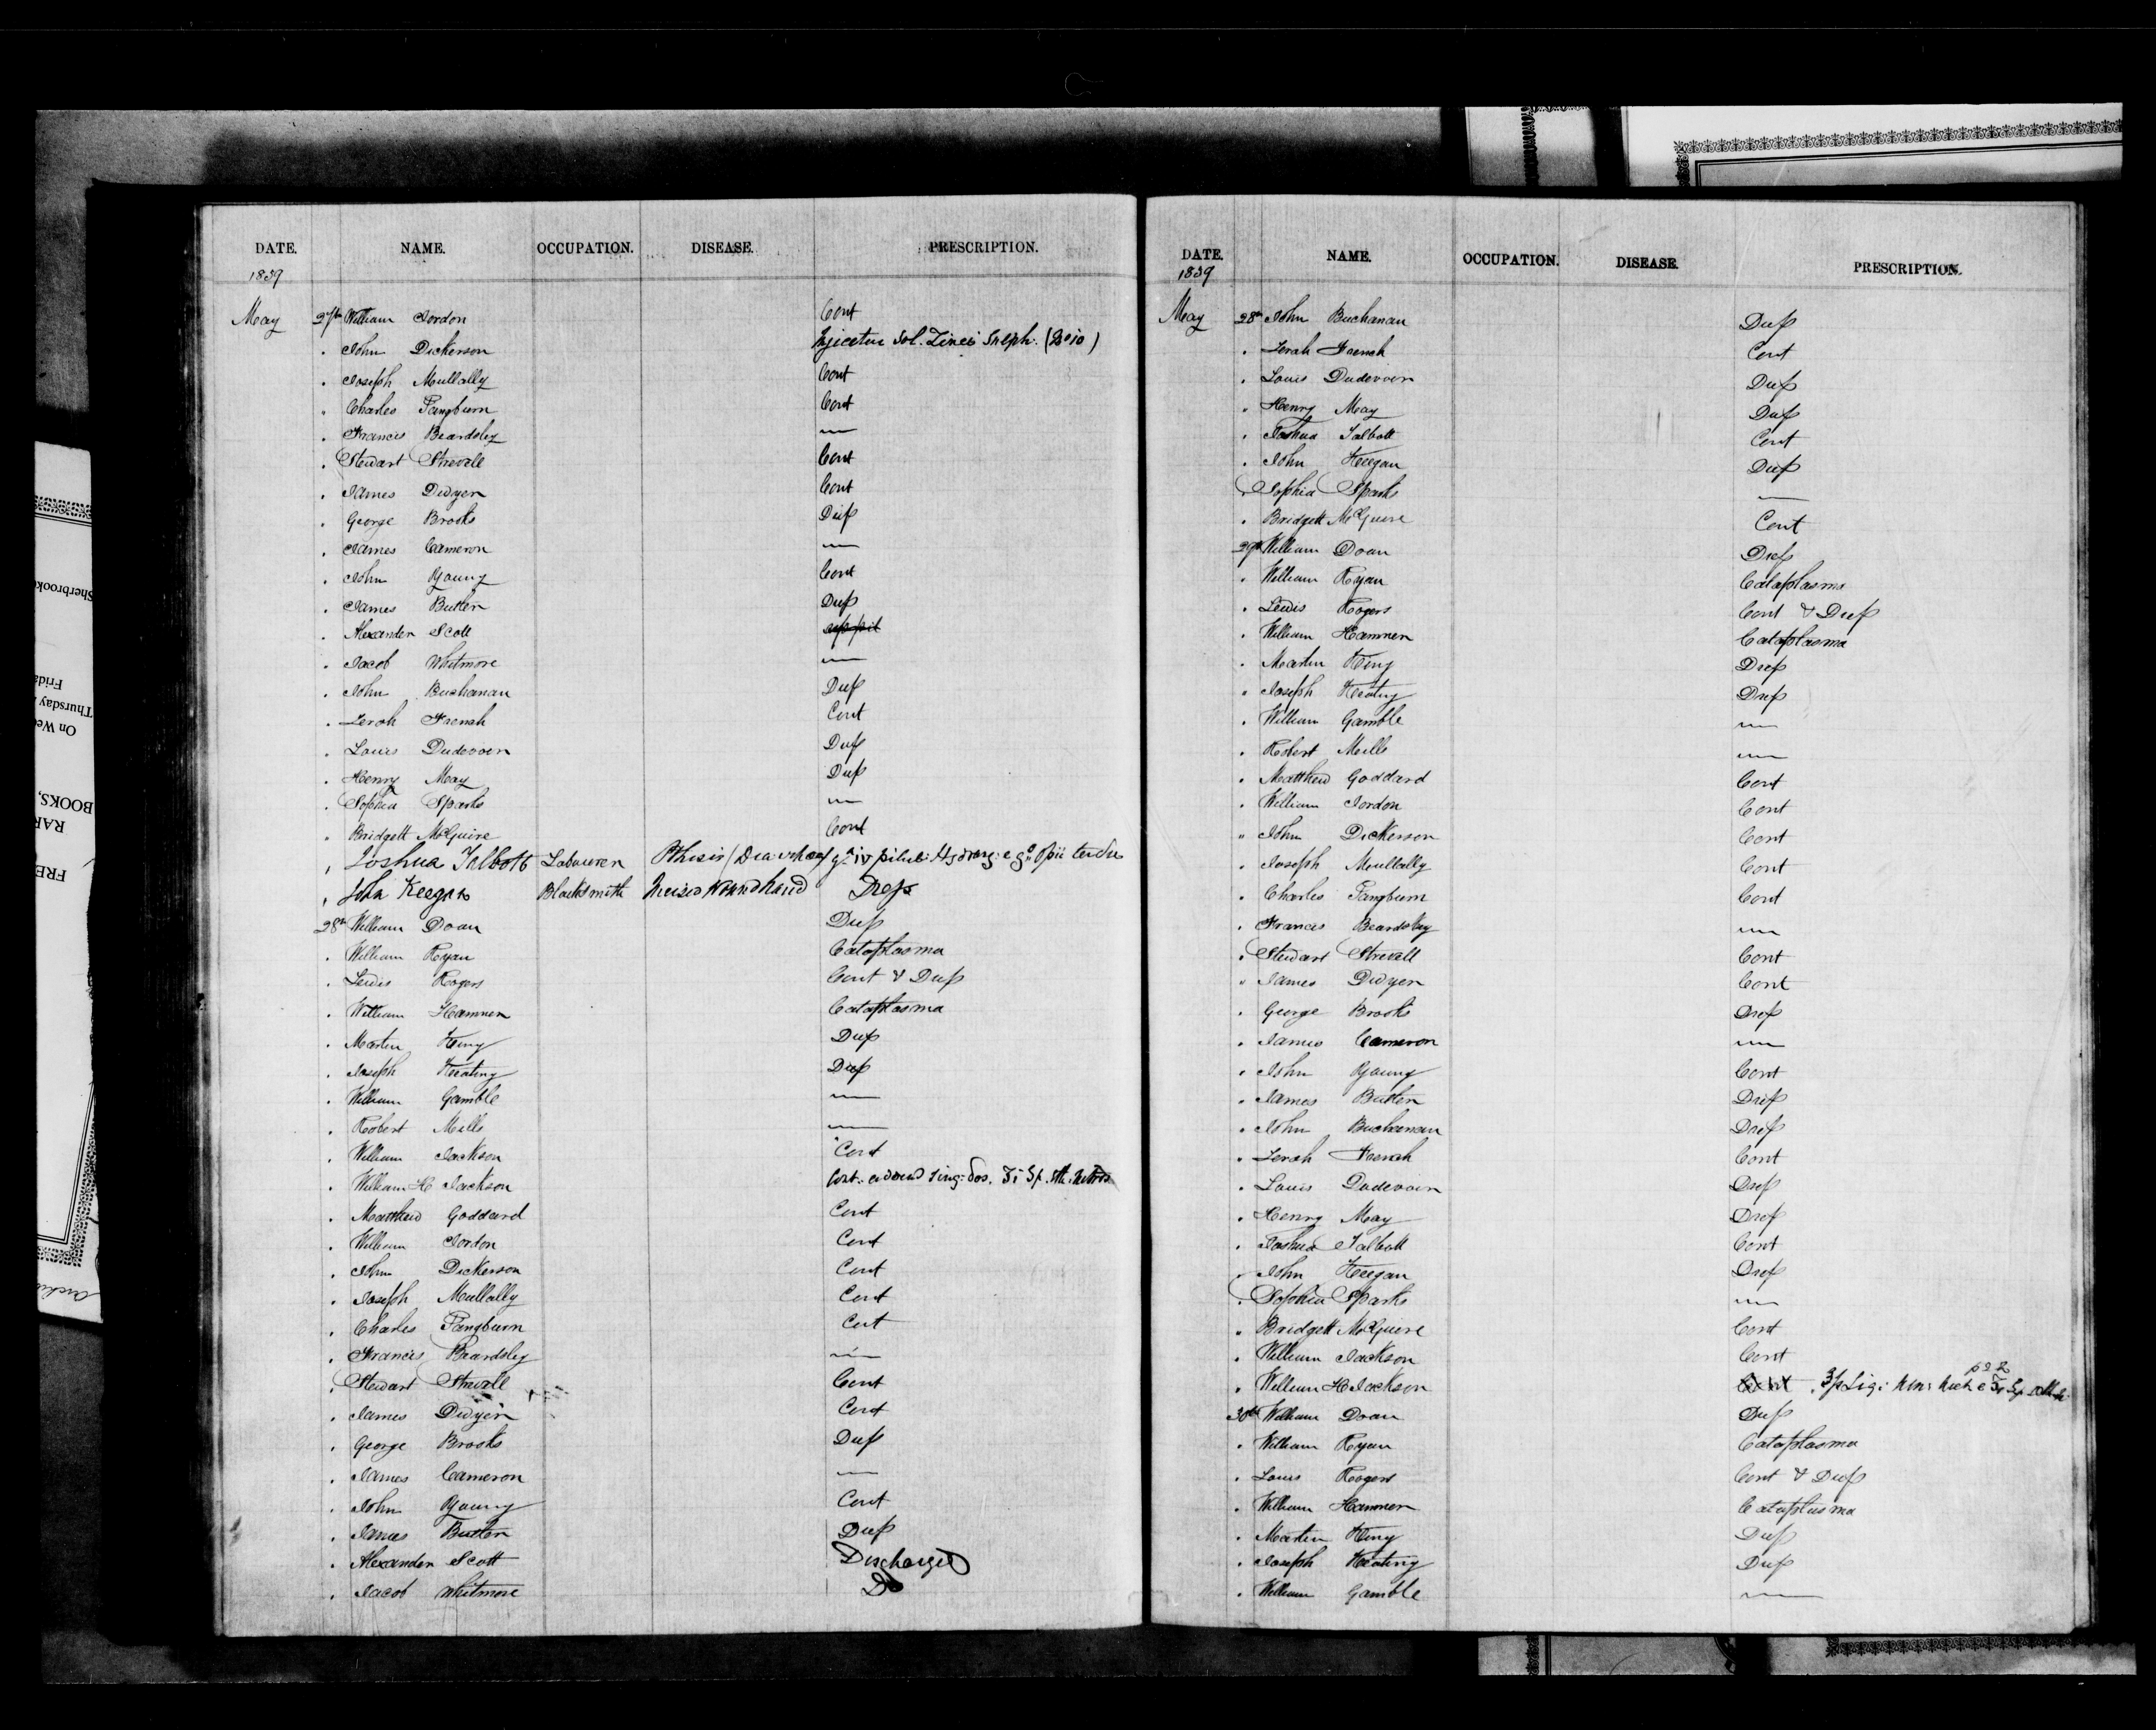 DATE. NAME. OCCUPATION. DISEASE. PRESCRIPTION.
1839
May 27th William Jordon Cont
" John Dickerson Injicetur Sol. Zinci Sulph.
" Joseph Mullally Cont
" Charles Pangburn Cont
" Francis Beardsley —
" Stewart Strevell Cont
" James Dwyer Cont
" George Brooks Dress
" James Cameron —
" John Young Cont
" James Butler Dress
" Alexander Scott
" Jacob Whitmore —
" John Buchanan Dress
" Lerah French Cont
" Louis Dudevoir Dress
" Henry May Dress
" Sophia Sparks —
" Bridgett McGuire Cont
" Joshua Talbott Labourer Phthisis
" John Keegan Blacksmith Incised Wound hand Dress
28th William Doan Dress
" William Ryan Cataplasma
" Lewis Rogers Cont & Dress
" William Hamner Cataplasma
" Martin King Dress
" Joseph Keating Dress
" William Gamble —
" Robert Mills —
" William Jackson Cont
" William H Jackson Cont.
" Matthew Goddard Cont
" William Jordon Cont
" John Dickerson Cont
" Joseph Mullally Cont
" Charles Pangburn Cont
" Francis Beardsley —
" Stewart Strevell Cont
" James Dwyer Cont
" George Brooks Dress
" James Cameron —
" John Young Cont
" James Butler Dress
" Alexander Scott Discharged
" Jacob Whitmore Do
DATE. NAME. OCCUPATION. DISEASE. PRESCRIPTION.
1839
May 28th John Buchanan Dress
" Lerah French Cont
" Louis Dudevoir Dress
" Henry May Dress
" Joshua Talbott Cont
" John Keegan Dress
" Sophia Sparks —
" Bridgett McGuire Cont
29th William Doan Dress
" William Ryan Cataplasma
" Lewis Rogers Cont & Dress
" William Hamner Cataplasma
" Martin King Dress
" Joseph Keating Dress
" William Gamble —
" Robert Mills —
" Matthew Goddard Cont
" William Jordon Cont
" John Dickerson Cont
" Joseph Mullally Cont
" Charles Pangburn Cont
" Francis Beardsley —
" Stewart Strevell Cont
" James Dwyer Cont
" George Brooks Dress
" James Cameron —
" John Young Cont
" James Butler Dress
" John Buchanan Dress
" Lerah French Cont
" Louis Dudevoir Dress
" Henry May Dress
" Joshua Talbott Cont
" John Keegan Dress
" Sophia Sparks —
" Bridgett McGuire Cont
" William Jackson Cont
" William H Jackson
30th William Doan Dress
" William Ryan Cataplasma
" Louis Rogers Cont & Dress
" William Hamner Cataplasma
" Martin King Dress
" Joseph Keating Dress
" William Gamble —
Sherbrooke
Thursday
On We
BOOKS,
RAR
FRE